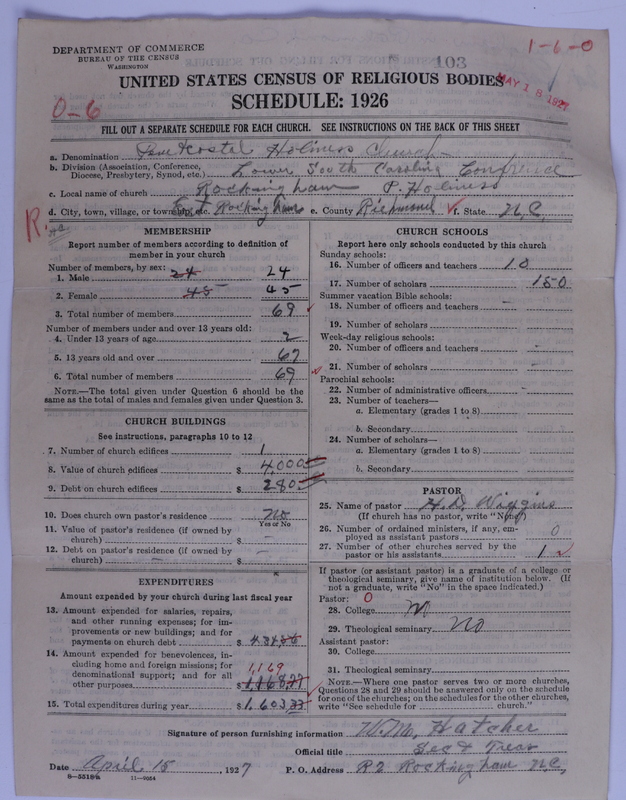 DEPARTMENT OF COMMERCE
BUREAU OF THE CENSUS
WASHINGTON
103
1-6-0
UNITED STATES CENSUS OF RELIGIOUS BODIES
MAY 18 1927
0-6
SCHEDULE: 1926
FILL OUT A SEPARATE SCHEDULE FOR EACH CHURCH. SEE INSTRUCTIONS ON THE BACK OF THIS SHEET
a. Denomination Pentecostal Holiness Church
b. Division (Association, Conference, Diocese, Presbytery, Synod, etc.) Lower South Carolina Conference
c. Local name of church Rockingham P. Holiness
d. City, town, village, or township, etc. Rockingham e. County Richmond f. State N.C
R.
MEMBERSHIP
Report number of members according to definition of
member in your church
Number of members, by sex:
1. Male 24 24
2. Female 45 45
3. Total number of members 69
Number of members under and over 13 years old:
4. Under 13 years of age 2
5. 13 years old and over 67
6. Total number of members 69
NOTE.—The total given under Question 6 should be
same as the total of males and females given under Question 3.
CHURCH BUILDINGS
See instructions, paragraphs 10 to 12
7. Number of church edifices 1
8. Value of church edifices $ 4,000
9. Debt on church edifices $ 280
10. Does church own pastor's residence No
Yes or No
11. Value of pastor's residence (if owned by
church) $ –
12. Debt on pastor's residence (if owned by
church) – $ –
EXPENDITURES
Amount expended by your church during last fiscal year
13. Amount expended for salaries, repairs,
and other running expenses; for im-
provements or new buildings; and for
payments on church debt $
14. Amount expended for benevolences, in-
cluding home and foreign missions; for
denominational support; and for all
other purposes $ 1,168.77
1,169
15. Total expenditures during year $ 1,603.33
CHURCH SCHOOLS
Report here only schools conducted by this church
Sunday schools:
16. Number of officers and teachers 10
17. Number of scholars 150
Summer vacation Bible schools:
18. Number of officers and teachers –
19. Number of scholars
Week-day religious schools:
20. Number of officers and teachers –
21. Number of scholars –
Parochial schools:
22. Number of administrative officers –
23. Number of teachers—
a. Elementary (grades 1 to 8)
b. Secondary
24. Number of scholars—
a. Elementary (grades 1 to 8)
b. Secondary
PASTOR
25. Name of pastor H.D. Wiggins
(If church has no pastor, write "None")
26. Number of ordained ministers, if any, em-
ployed as assistant pastors 0
27. Number of other churches served by the
pastor or his assistants 1
If pastor (or assistant pastor) is a graduate of a college or
theological seminary, give name of institution below. (If
not a graduate, write "No" in the space indicated.)
Pastor: 0
28. College No
29. Theological seminary No
Assistant pastor:
30. College
31. Theological seminary
NOTE.—Where one pastor serves two or more churches,
Questions 28 and 29 should be answered only on the schedule
for one of the churches; on the schedules for the other churches,
write "See schedule for church."
Signature of person furnishing information W.M. Hatcher
Official title Sec & Treas
Date April 15, 1927 P. O. Address R2 Rockingham N.C,
8-5518a 11-9064